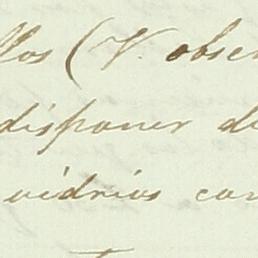 llos (V. obser
disponer de
vidrios con